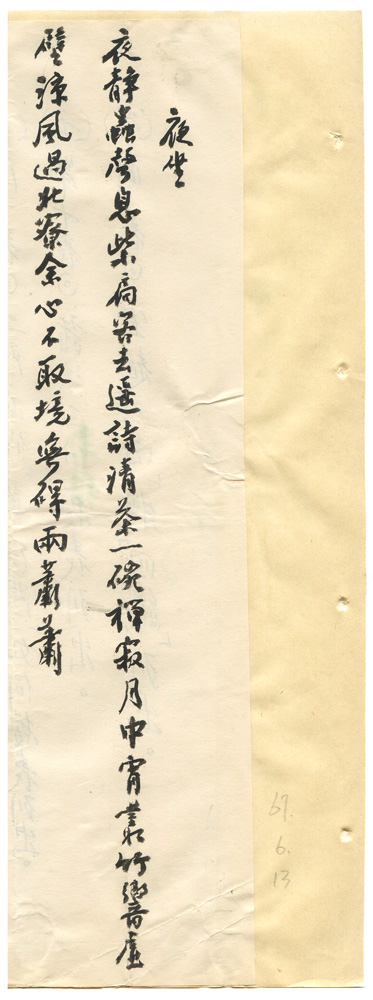 夜坐
夜静蟲聲息柴扃客去遥詩清茶一碗禪寂月中宵叢竹響音虛
壁涼風過北寮余心不取境無碍雨蕭蕭
67.
6.
13